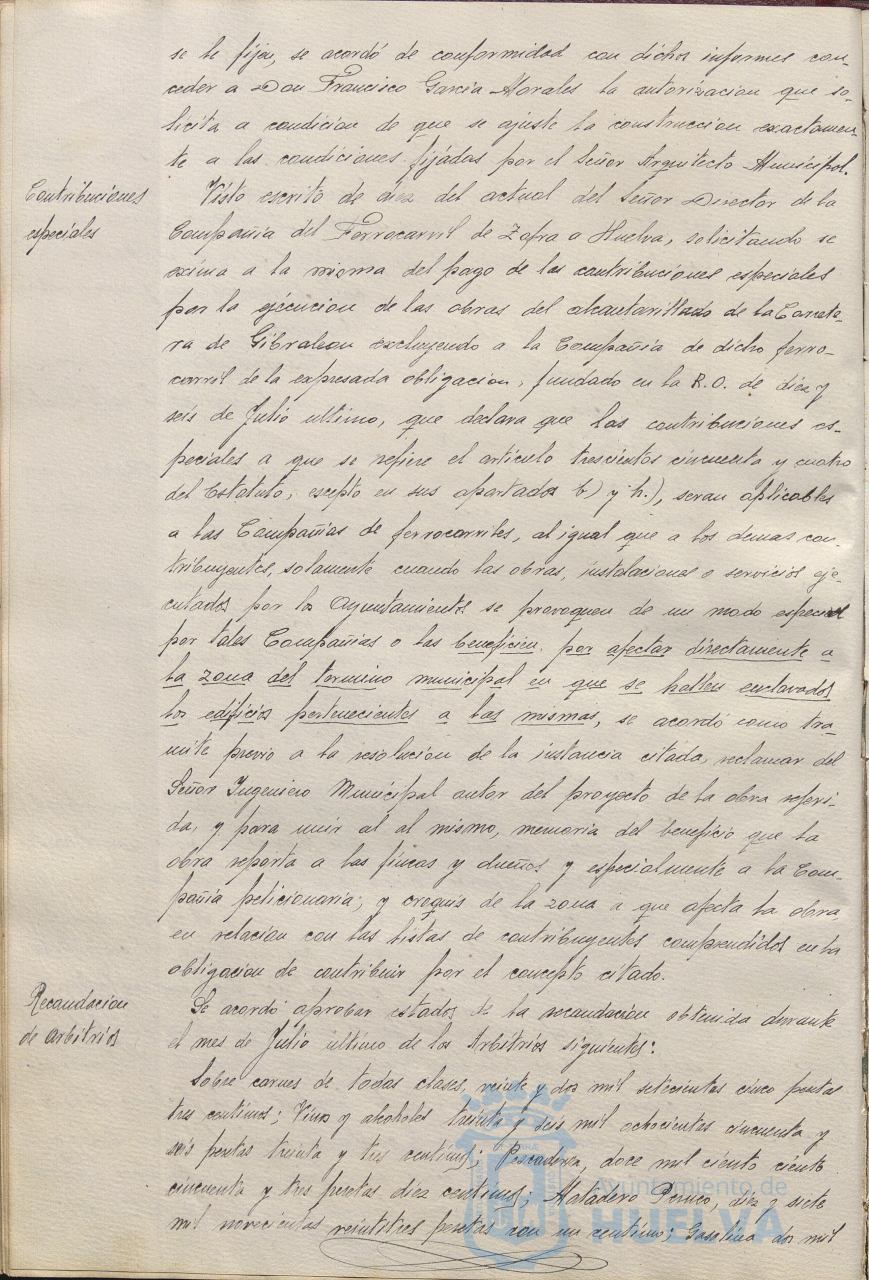 se le fijan, se acordó de conformidad con dichos informes con-
ceder a Don Francisco Garcia Morales la autorizacion que so-
licita a condicion de que se ajuste la construccion exactamen-
te a las condiciones fijadas por el Señor Arquitecto Municipal.
Contribuciones
especiales
Visto escrito de diez del actual del Señor Director de la
Compañia del Ferrocarril de Zafra a Huelva, solicitando se
exima a la misma del pago de las contribuciones especiales
por la ejecucion de las obras del alcantarillado de la Carrete-
ra de Gibraleon excluyendo a la Compañia de dicho ferro-
carril de la expresada obligacion, fundado en la R.O. de diez y
seis de Julio ultimo, que declara que las contribuciones es-
peciales a que se refiere el articulo trescientos cincuenta y cuatro
del Estatuto, escepto en sus apartados b) y h.), seran aplicables
a las Compañias de ferrocarriles, al igual que a los demas con-
tribuyentes, solamente cuando las obras, instalaciones o servicios eje-
cutados por los Ayuntamientos se provoquen de un modo especial
por tales Compañias o las beneficien por afectar directamente a
la zona del termino municipal en que se hallen enclavados
los edificios pertenecientes a las mismas, se acordó como tra-
mite previo a la resolucion de la instancia citada, reclamar del
Señor Ingeniero Municipal autor del proyecto de la obra referi-
da, y para unir al al mismo, memoria del beneficio que la
obra reporta a las fincas y dueños y especialmente a la Com-
pañia peticionaria; y croquis de la zona a que afecta la obra,
en relacion con las listas de contribuyentes comprendidos en la
obligacion de contribuir por el concepto citado.
Recaudacion
de arbitrios
Se acordó aprobar estados de la recaudacion obtenida durante
el mes de Julio ultimo de los Arbitrios siguientes:
Sobre carnes de todas clases, veinte y dos mil setecientas cinco pesetas
tres centimos; Vinos y alcoholes treinta y seis mil ochocientas cincuenta y
seis pesetas treinta y tres centimos; Pescaderia, doce mil ciento
cincuenta y tres pesetas diez centimos; Matadero Perneo, diez y siete
mil novecientas veintitres pesetas con un centimo; Gasolina dos mil
Ayuntamiento de
HUELVA